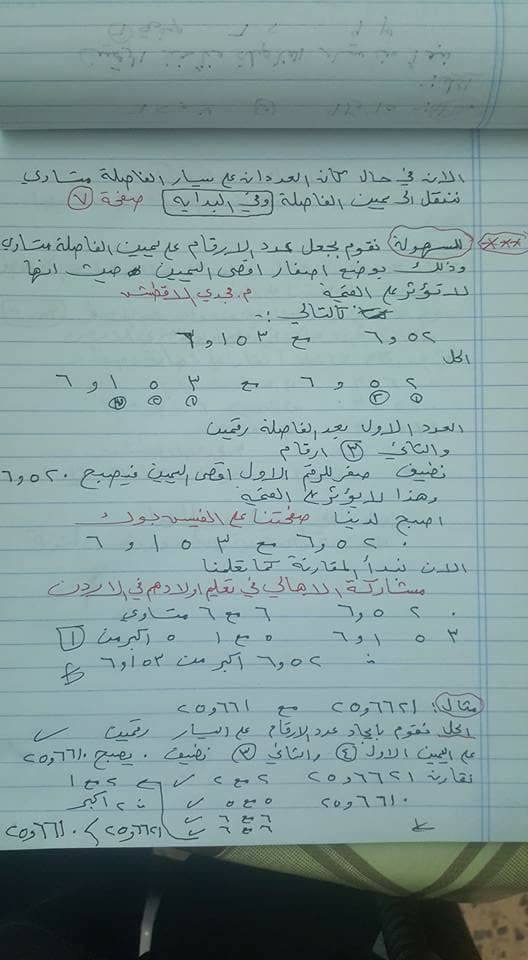 الان في حال كان العددان على يسار الفاصلة متساوي
ننتقل الى يمين الفاصلة وفي البداية صفحة ٧
*** للسهولة نقوم بجعل عدد الارقام على يمين الفاصلة متساوي
وذلك بوضع اصفار اقصى اليمين حيث انها
لا تؤثر على القيمة م. مجدي الاقطش
كالتالي :-
٦٫٥٢ مع ٦٫١٥٣
الحل
٦٫٥٢ مع ٦٫١٥٣
١ ٢ ١ ٢ ٣
العدد الاول بعد الفاصلة رقمين
والثاني ٣ ارقام
نضيف صفر للرقم الاول اقصى اليمين فيصبح ٦٫٥٢٠
وهذا لا يؤثر على القيمة
اصبح لدينا صفحتنا على الفيس بوك
٦٫٥٢٠ مع ٦٫١٥٣
الان نبدأ المقارنة كما تعلمنا
مشاركة الاهالي في تعليم اولادهم في الاردن
٦٫٥٢٠ ٦ مع ٦ متساوي
٦٫١٥٣ ٥ مع ١ ٥ اكبر من ١
∴ ٦٫٥٢ اكبر من ٦٫١٥٣
مثال: ٢٥٫٦٦٢١ مع ٢٥٫٦٦١
الحل نقوم بايجاد عدد الارقام على اليسار رقمين ✓
على اليمين الاول ٤ والثاني ٣ نضيف ٠ يصبح ٢٥٫٦٦١٠
نقارن ٢٥٫٦٦٢١ ٢ مع ٢ ✓ ٢ مع ١
٢٥٫٦٦١٠ ٥ مع ٥ ✓ ∴ ٢ اكبر
٦ مع ٦ ✓
٦ مع ٦ ✓ ٢٥٫٦٦٢١ > ٢٥٫٦٦١٠